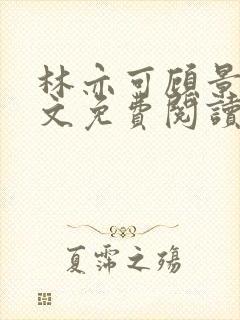 林亦可顾景
文免费閱讀
夏霈之殤